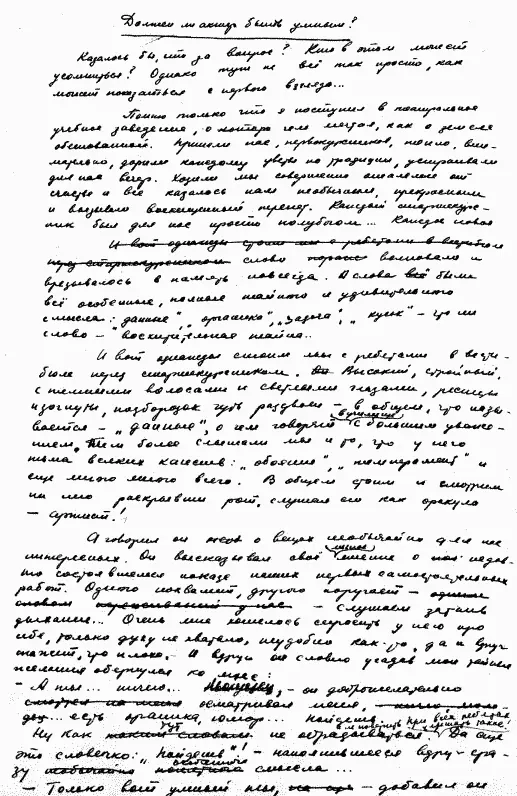 Должен ли актер быть умным?
Казалось бы, что за вопрос? Кто в этом может
усомниться? Однако тут не всё так просто, как
может показаться с первого взгляда...
Помню только что я поступил в театральное
учебное заведение, о котором мечтал, как о земле
обетованной. Приняли нас, первокурсников, тепло, вни-
мательно, дарили каждому цветы по традиции, устраивали
для нас вечер. Ходили мы совершенно ошалелые от
счастья и все казалось нам необычным, прекрасным
и вызывало восхищенный трепет. Каждый старшекурс-
ник был для нас просто полубогом... Каждое новое
И вот однажды стоим мы с ребятами в вестибюле
перед старшекурсником слово волновало и
врезывалось в память навсегда. А слова всё были
всё особенные, полные тайного и удивительного
смысла: „данные", „органика", „задача", „кусок" – что ни
слово – восхитительная тайна..
И вот однажды стоим мы с ребятами в вести-
бюле перед старшекурсником. Высокий, стройный,
с темными волосами и светлыми глазами, ресницы
изогнуты, подбородок чуть раздвоен – в общем, что назы-
вается – „данные", о чем говорят с большим уваже-
нием. Тем более слышали мы и то, что у него
тьма всяких качеств: „обаяние", „темперамент" и
еще много много всего. В общем стоим и смотрим
на него раскрывши рот, слушая его как оракула
– артист!
А говорил он о вещах необычайно для нас
интересных. Он высказывал своё личное мнение о недав-
но состоявшемся показе наших первых самостоятельных
работ. Одного похвалит, другого поругает –
– слушаем затаив
дыхание... Очень мне хотелось спросить у него про
себя, только духу не хватало, неудобно как-то, да и вдруг
скажет, что плохо. И вдруг он словно угадав мои тайные
желания обернулся ко мне:
– А ты... ничего... – он доброжелательно
осматривал меня,
есть органика, юмор... Найдешь
Ну как тут не обрадоваться Да еще
это словечко: „Найдешь"! – наполнившееся вдруг сра-
зу смысла...
– Только вот умный ты, – добавил он